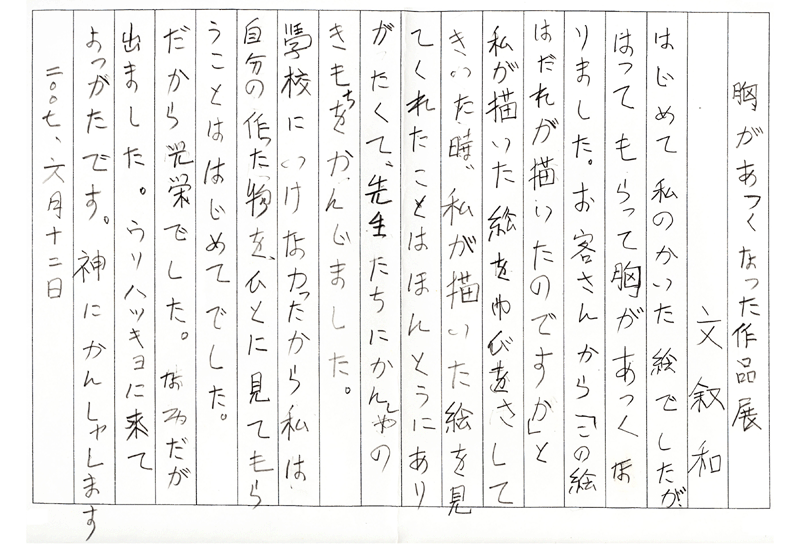 胸があつくなった作品展
文叙和
はじめて私のかいた絵でしたが、
はってもらって胸があつくな
りました。お客さんから「この絵
はだれが描いたのですか」と
私が描いた絵をゆびをさして
きいた時、私が描いた絵を見
てくれたことはほんとうにあり
がたくて、先生たちにかんしゃの
きもちをかんじました。
学校にいけなかったから私は
自分の作った物を、ひとに見てもら
うことははじめてでした。
だから光栄でした。なみだが
出ました。ウリハッキョに来て
よっがたです。神にかんしゃします
二〇〇七、六月十二日